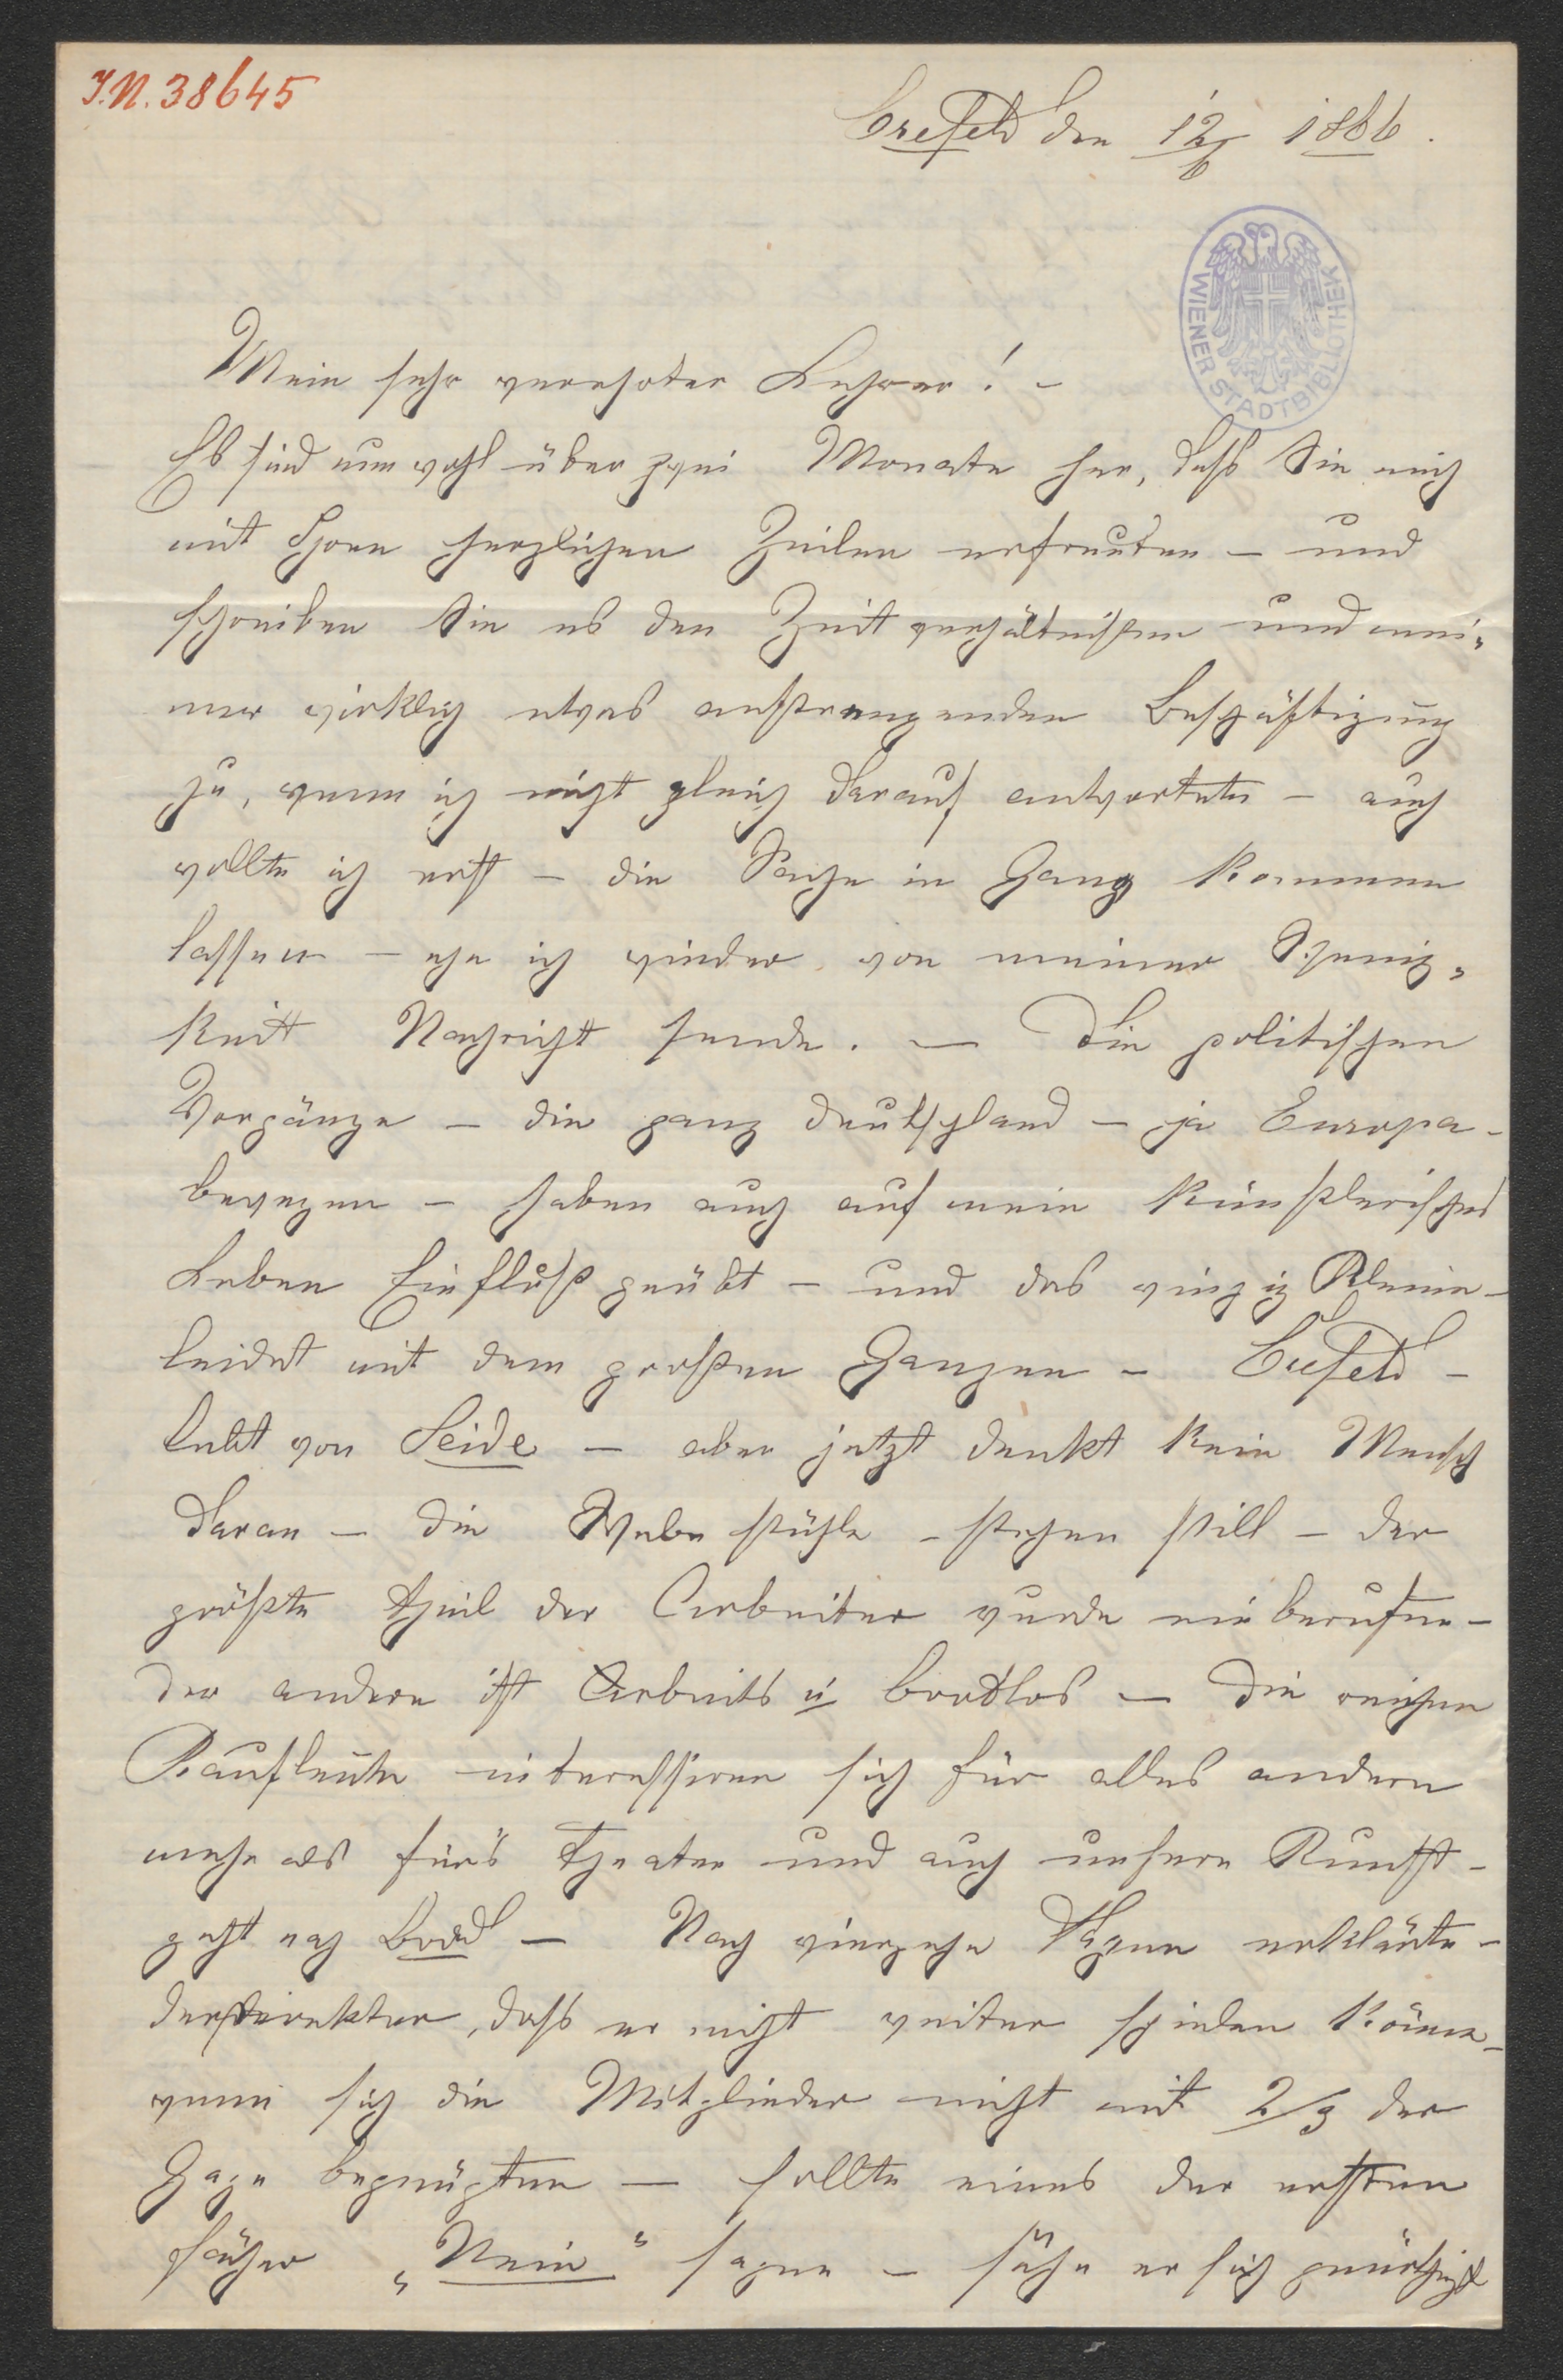 I.N. 38645
Crefeld den 12/6 1866.
WIENER STADTBIBLIOTHEK
Mein sehr verehrter Lehrer! –
Es sind nun wohl über zwei Monate her, daß Sie mich
mit Ihren herzlichen Zeilen erfreuten – und
schreiben Sie es den Zeitverhältnissen und mei-
ner wirklich etwas anstrengenden Beschäftigung
zu, wenn ich nicht gleich darauf antwortete – auch
wollte ich erst – die Sache in Gang kommen
lassen – ehe ich wieder von meiner Wenig-
keit Nachricht sende. – Die politischen
Vorgänge – die ganz Deutschland – ja Europa –
bewegen – haben auch auf mein künstlerisches
Leben Einfluß geübt – und das winzig Kleine –
leidet mit dem großen Ganzen – Crefeld –
lebt von Seide – aber jetzt denkt kein Mensch
daran – die Webestühle – stehen still – der
größte Theil der Arbeiter wurde einberufen –
der andere ist Arbeits u brodlos – die reichen
Kaufleute interessiren sich für alles andere
mehr als für's Theater und auch unsere Kunst –
geht nach Brod – Nach vierzehn Tagen erklärte –
der Direktor, daß er nicht weiter spielen könne –
wenn sich die Mitglieder nicht mit 2/3 der
Gage begnügten – sollte eines der ersten
Fächer „Nein" sagen – sähe er sich genöthigt